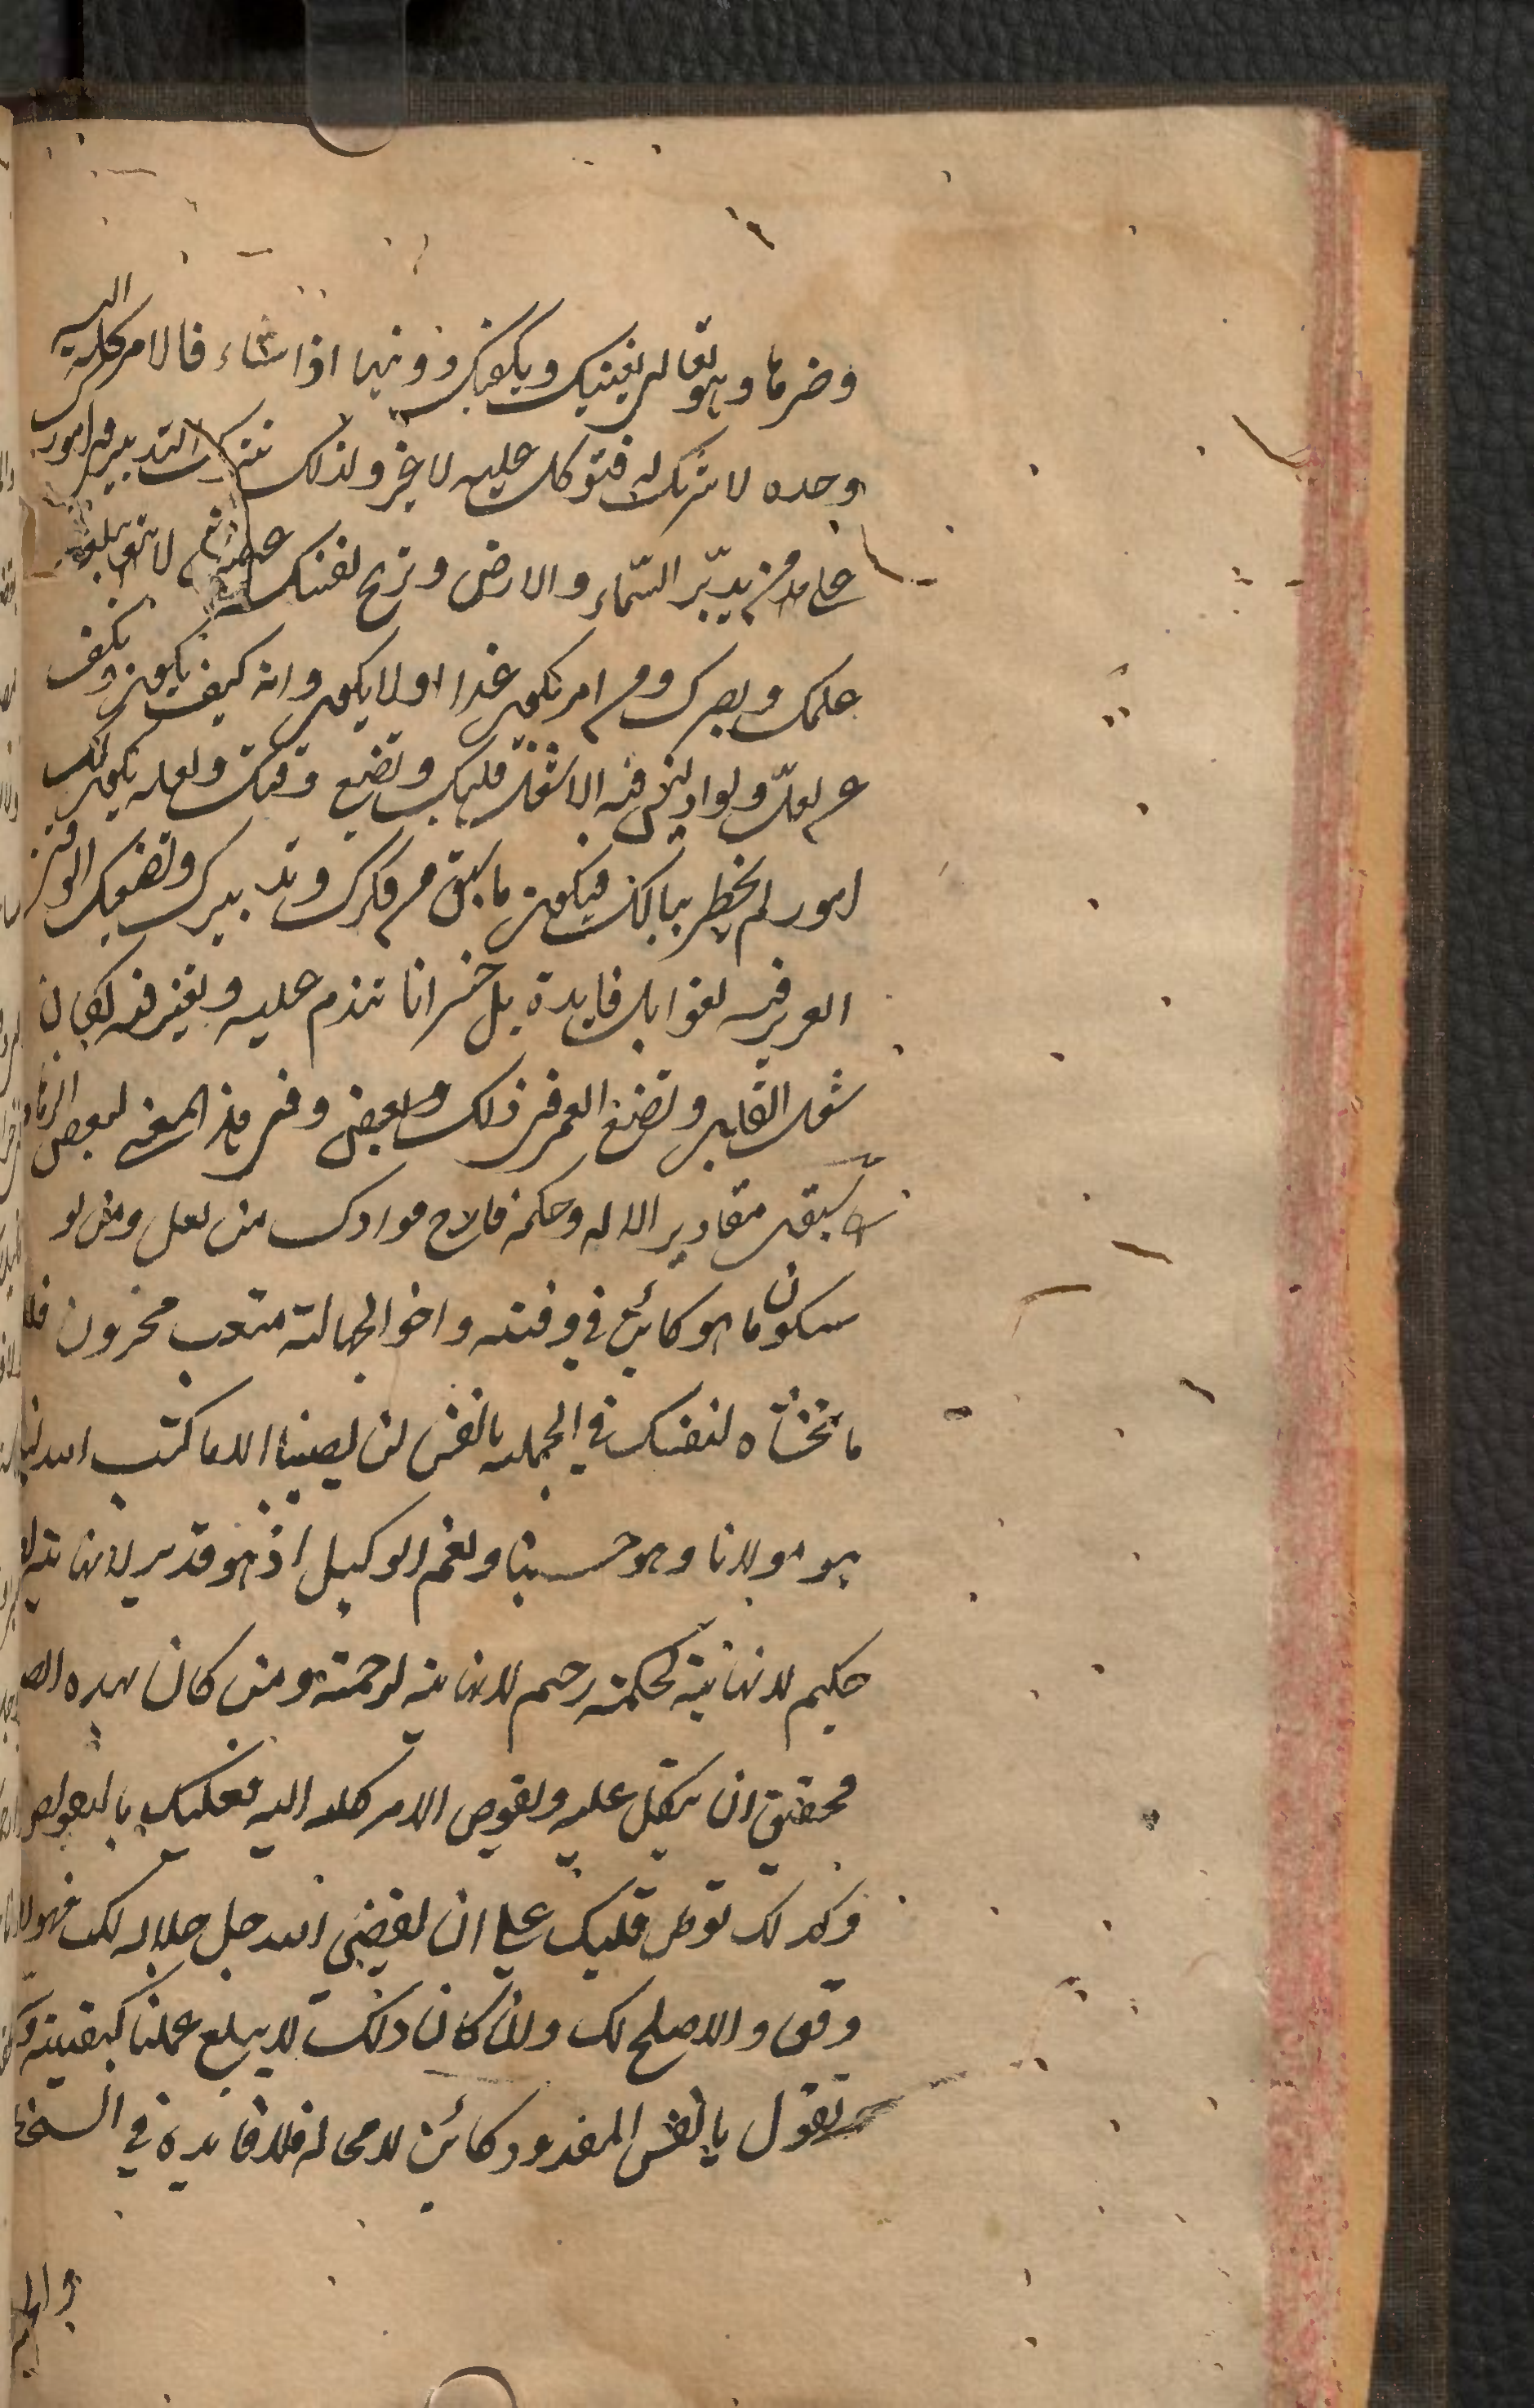 وضرها وهو تعالى يغنيك ويكفيك دونهما اذا شاء فالامر كله اليه
وحده لا شريك له فتوكل عليه لا غير ولذلك تترك التدبير في امور
على من يدبّر السّماء والارض وتريح نفسك عن لا يبلغه
علمك وبصرك من امر يكون غدا او لا يكون وانه كيف يكون وتكف
عن لعلّ ولو اذ ليس فيه الا شغل قلبك وتضيع وقتك ولعله يكون لك
امور لم يخطر ببالك فيكون ما سبق من فكرك وتدبيرك وتضيعك الوقت
العزيز فيه لغوا بلا فايدة بل خسرانا تندم عليه وتغبن فيه لمكان
شغل القلب وتضيع العمر في ذلك وفي هذا المعنى لبعض الزهاد
سبقت مقادير الاله وحكمه فارح فوادك من لعل ومن لو
سيكون ما هو كائن في وقته واخو الجهالة متعب محزون
ما تخشاه لنفسك في الجملة يا نفس لن يصيبنا الا ما كتب الله لنا
هو مولانا وهو حسبنا ونعم الوكيل اذ هو قدير لا نهاية
حكيم لا نهاية لحكمته رحيم لا نهاية لرحمته ومن كان بهذه
فحقيق ان يتكل عليه ويفوض الامر كله اليه فعليك بالتفويض
وكذلك توطن قلبك على ان يقضي الله جل جلاله لك فهو
وفق والاصلح لك وان كان ذلك لا يبلغ علمنا كيفيته
وتقول يا نفس المقدور كائن لا محالة فلا فايدة في السخط